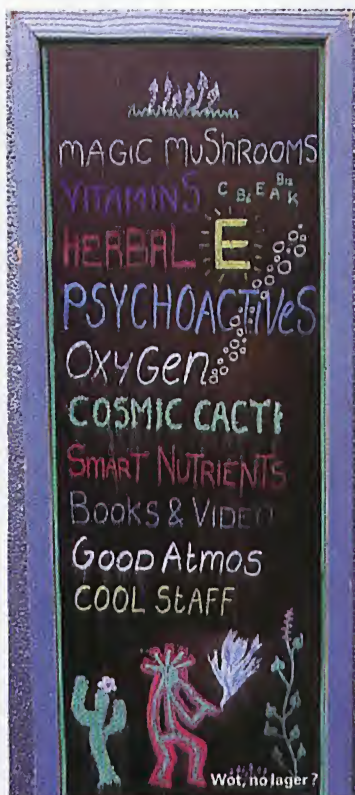 MAGIC MuShROOMS
VITAMINS C B6 E A B12 K
HERBAL E
PSYCHOACTIVeS
OXYGen
COSMIC CACTI
SMART NUTRIENTS
BOOKS & VIDEO
GOOD AtMOS
COOL StAFF
Wot, no lager?